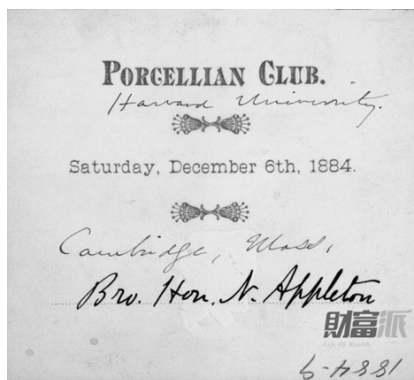 PORCELLIAN CLUB.
Harvard University.
Saturday, December 6th, 1884.
Cambridge, Mass,
Bro. Hon. N. Appleton
財富派
Life Of Wealth
1884-9